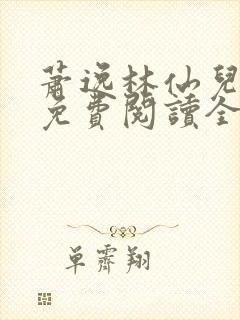 蕭逸林仙兒
免費閱讀全
单霽翔